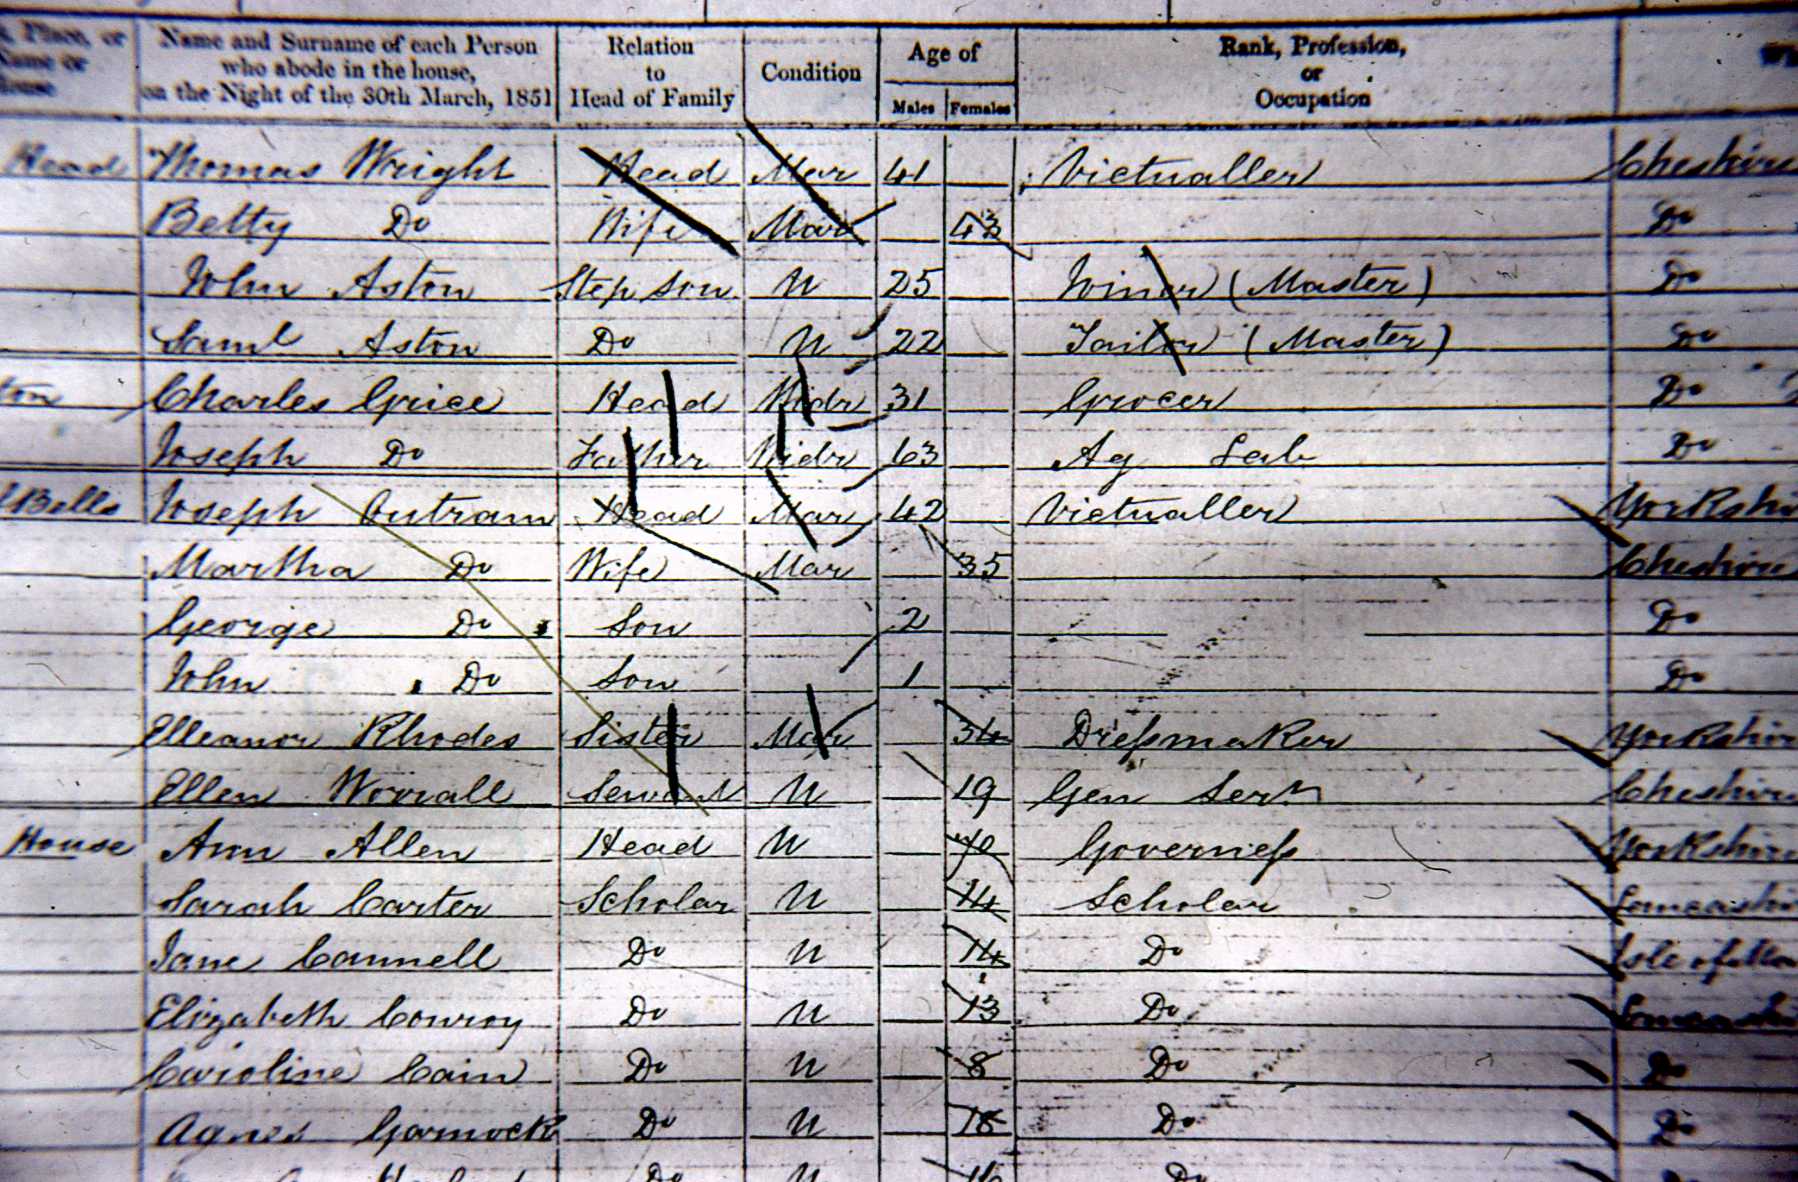 Place, or Name and Surname of each Person Relation Condition Age of Rank, Profession,
Name or who abode in the house, to or
House on the Night of the 30th March, 1851 Head of Family Males Females Occupation
Head Thomas Wright Head Mar 41 Victualler Cheshire
Betty Do Wife Mar 43 Do
John Aston Step Son U 25 Joiner (Master) Do
Saml Aston Do U 22 Tailor (Master) Do
ton Charles Grice Head Widr 31 Grocer Do
Joseph Do Father Widr 63 Ag Lab Do
Bells Joseph Outram Head Mar 42 Victualler Yorkshi
Martha Do Wife Mar 35 Cheshire
George Do Son 2 Do
John Do Son 1 Do
Elleanor Rhodes Sister Mar 34 Dressmaker Yorkshir
Ellen Worrall Servant U 19 Gen Servt Cheshire
House Ann Allen Head U Governess Yorkshire
Sarah Carter Scholar U 14 Scholar Lancashi
Jane Cannell Do U 14 Do Isle of Man
Elizabeth Conroy Do U 13 Do Lancashi
Caroline Cain Do U 8 Do Do
Agnes Garnock Do U 18 Do Do
Do U 16 Do